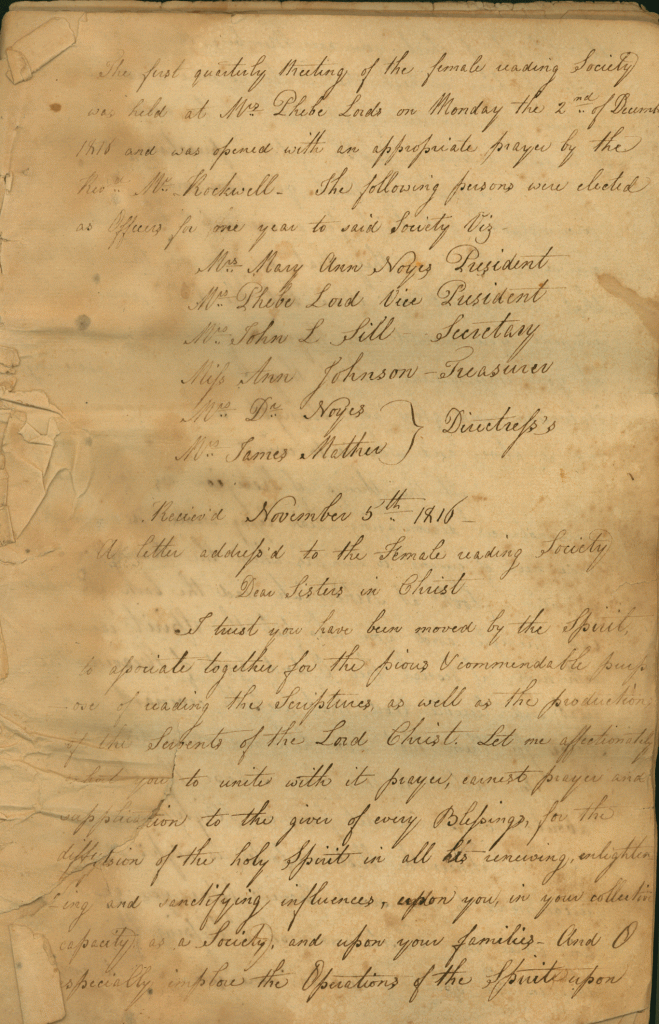 The first quarterly Meeting of the female reading Society
was held at Mrs. Phebe Lords on Monday the 2nd of Decemb
1816 and was opened with an appropriate prayer by the
Revd. Mr. Rockwell. The following persons were elected
as Officers for one year to said Society Viz-
Mrs Mary Ann Noyes President
Mrs Phebe Lord Vice President
Mrs John L. Sill - Secretary
Miss Ann Johnson - Treasurer
Mrs Dr. Noyes
Mrs James Mather } Directress's
Reciev'd November 5th 1816-
A letter address'd to the Female reading Society
Dear Sisters in Christ
I trust you have been moved by the Spirit,
to associate together for the pious & commendable purp
ose of reading the Scriptures, as well as the productions
of the Servents of the Lord Christ. Let me affectionately
you to unite with it prayer, earnest prayer and
supplication to the giver of every Blessings, for the
diffusion of the holy Spirit in all his renewing, enlighten
ing and sanctifying influences, upon you, in your collective
capacity as a Society, and upon your families - And O
especially implore the Operations of the Spirit upon